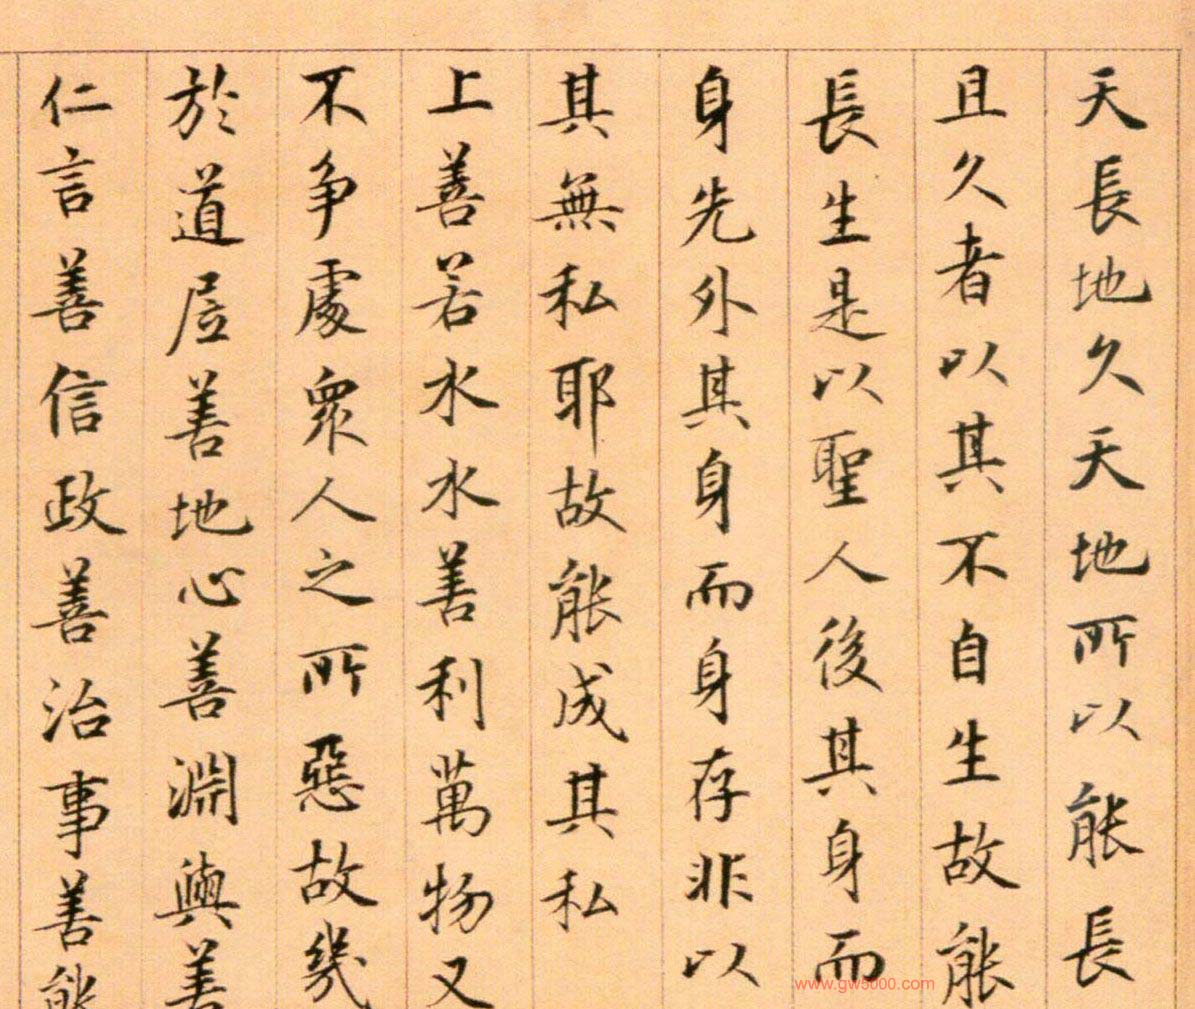 天長地久天地所以能長
且久者以其不自生故能
長生是以聖人後其身而
身先外其身而身存非以
其無私耶故能成其私
上善若水水善利萬物又
不爭處衆人之所惡故幾
於道居善地心善淵與善
仁言善信政善治事善能
www.gw5000.com